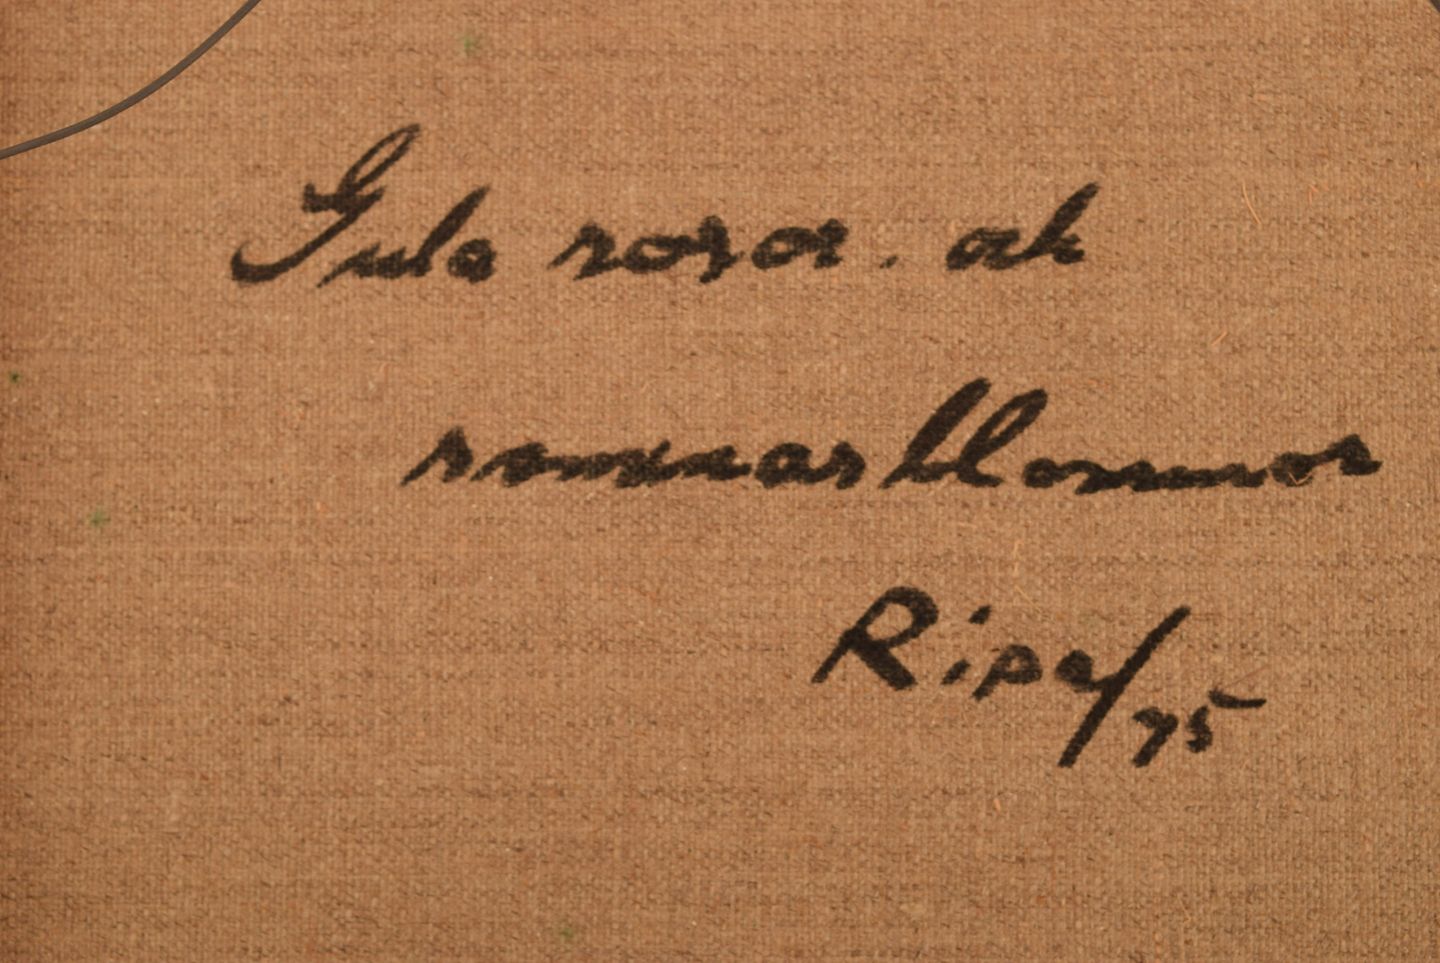 Gula rosor. ok
sommarblommor
Ripa/75